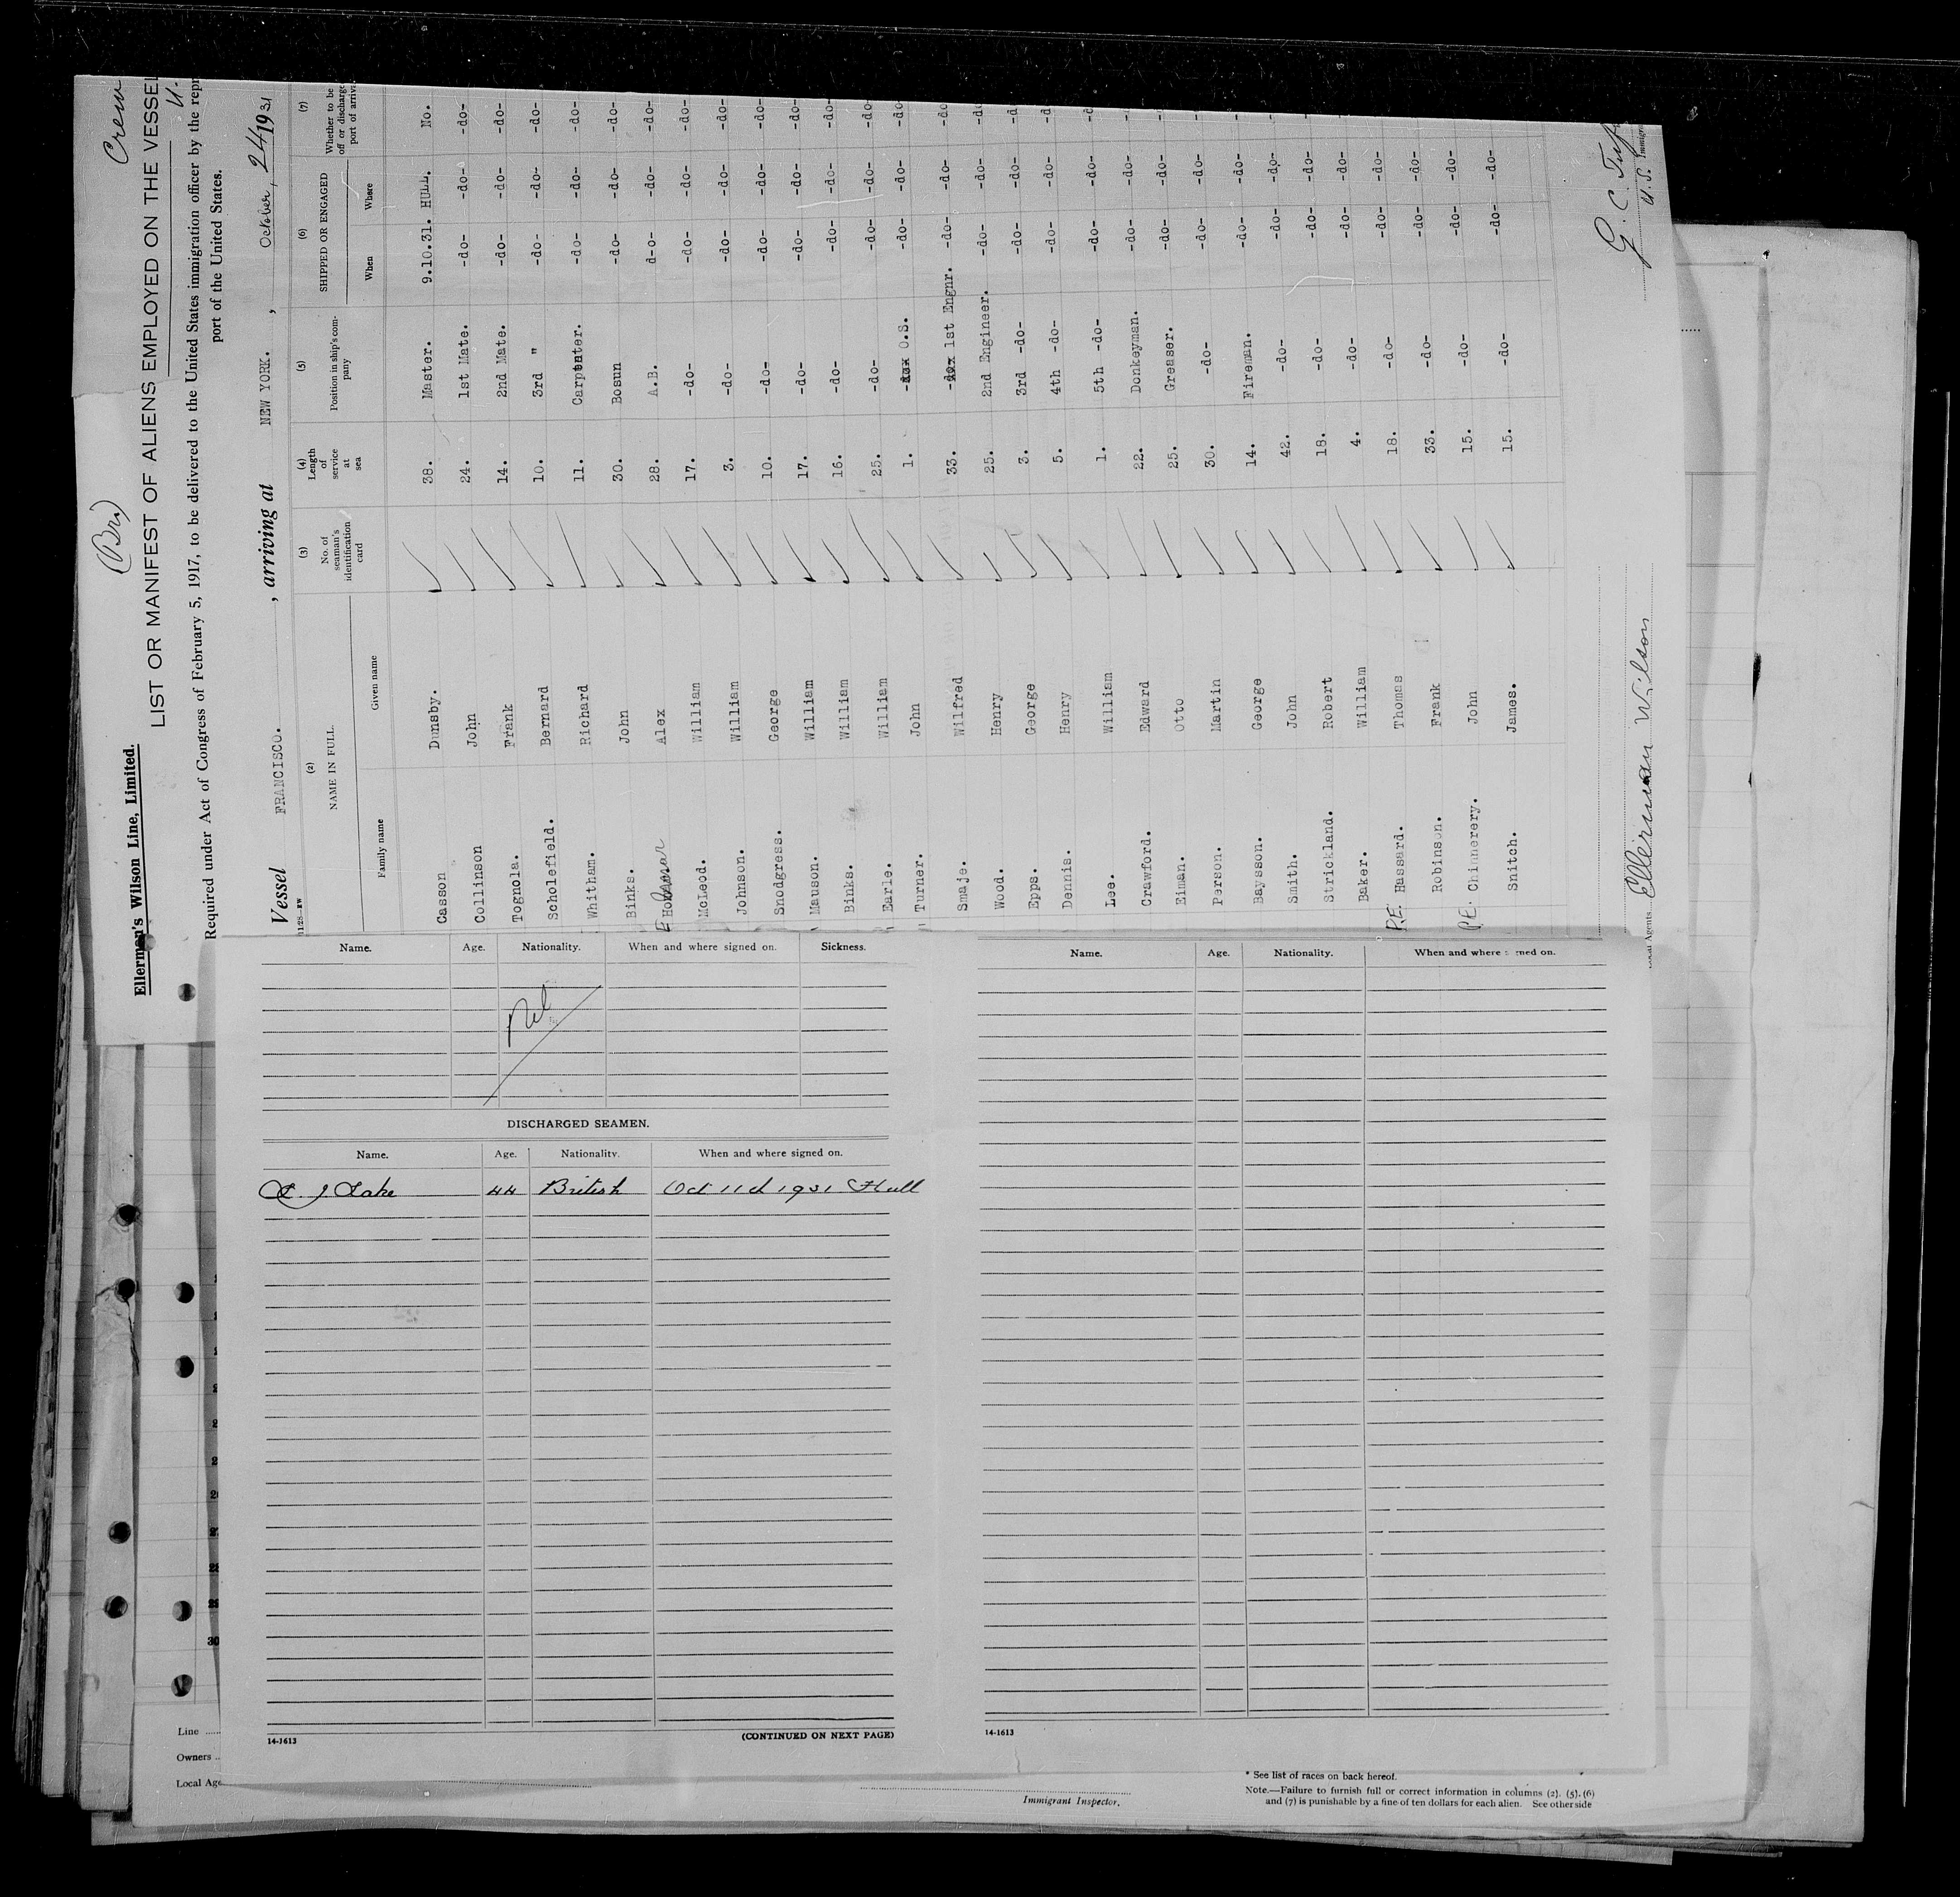 Crew
(Br)
Ellerman's Wilson Line, Limited.
LIST OR MANIFEST OF ALIENS EMPLOYED ON THE VESSEL
Required under Act of Congress of February 5, 1917, to be delivered to the United States immigration officer by the
port of the United States.
Vessel FRANCISCO. , arriving at NEW YORK. , October, 24/1931
11-28-RW
(2) (3) (4) (5) (6) (7)
NAME IN FULL No. of seaman's identification card Length of service at sea Position in ship's company SHIPPED OR ENGAGED Whether to be
off or discharge
port of
Family name Given name When Where
Casson Dunsby. 38. Master. 9.10.31. HULL. No.
Collinson John 24. 1st Mate. -do- -do- -do-
Tognola. Frank 14. 2nd Mate. -do- -do- -do-
Scholefield. Bernard 10. 3rd " -do- -do- -do-
Whitham. Richard 11. Carpenter. -do- -do- -do-
Binks. John 30. Bosun -do- -do- -do-
Alex 28. A.B. d-o- -do- -do-
McLeod. William 17. -do- -do- -do- -do-
Johnson. William 3. -do- -do- -do- -do-
Snodgress. George 10. -do- -do- -do- -do-
Mauson. William 17. -do- -do- -do- -do-
Binks. William 16. -do- -do- -do- -do-
Earle. William 25. -do- -do- -do- -do-
Turner. John 1. O.S. -do- -do- -do-
Smaje. Wilfred 33. 1st Engnr. -do- -do- -do
Wood. Henry 25. 2nd Engineer. -do- -do- -d
Epps. George 3. 3rd -do- -do- -do- -d
Dennis. Henry 5. 4th -do- -do- -do- -d
Lee. William 1. 5th -do- -do- -do- -d
Crawford. Edward 22. Donkeyman. -do- -do-
Eiman. Otto 25. Greaser. -do- -do-
Person. Martin 30. -do- -do- -do-
Baysson. George 14. Fireman. -do- -do-
Smith. John 42. -do- -do- -do-
Strickland. Robert 18. -do- -do- -do-
Baker. William 4. -do- -do- -do-
P.E. Hassard. Thomas 18. -do- -do- -do-
Robinson. Frank 33. -do- -do- -do-
P.E. Chinnerery. John 15. -do- -do- -do-
Snitch. James. 15. -do- -do- -do-
G. C.
U.S.
Agents Ellerman Wilson
Name. Age. Nationality. When and where signed on. Sickness.
Nil
DISCHARGED SEAMEN.
Name. Age. Nationality. When and where signed on.
Lake 44 British Oct 11th 1931 Hull
14-1613 (CONTINUED ON NEXT PAGE)
Name. Age. Nationality. When and where signed on.
14-1613
28
29
30
Line
Owners
Local Age
Immigrant Inspector.
* See list of races on back hereof.
Note.—Failure to furnish full or correct information in columns (2), (5), (6)
and (7) is punishable by a fine of ten dollars for each alien. See other side